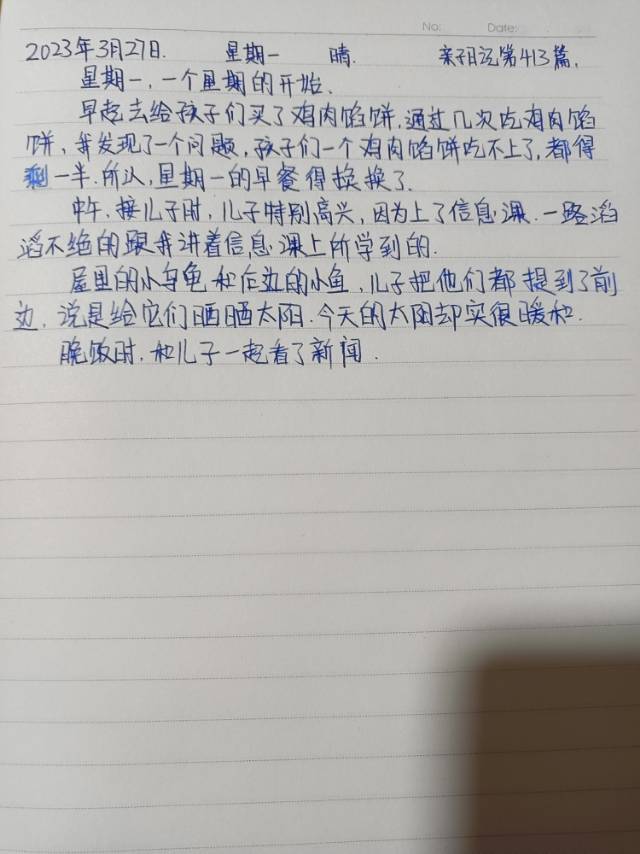 No: Date:
2023年3月27日. 星期一 晴. 亲子日记第413篇.
星期一,一个星期的开始.
早起去给孩子们买了鸡肉馅饼,通过几次吃鸡肉馅
饼,我发现了一个问题,孩子们一个鸡肉馅饼吃不上了,都得
剩一半.所以,星期一的早餐得换换了.
中午,接儿子时,儿子特别高兴,因为上了信息课.一路滔
滔不绝的跟我讲着信息课上所学到的.
屋里的小乌龟和右边的小鱼,儿子把他们都提到了前
边,说是给它们晒晒太阳.今天的太阳却实很暖和.
晚饭时,和儿子一起看了新闻.